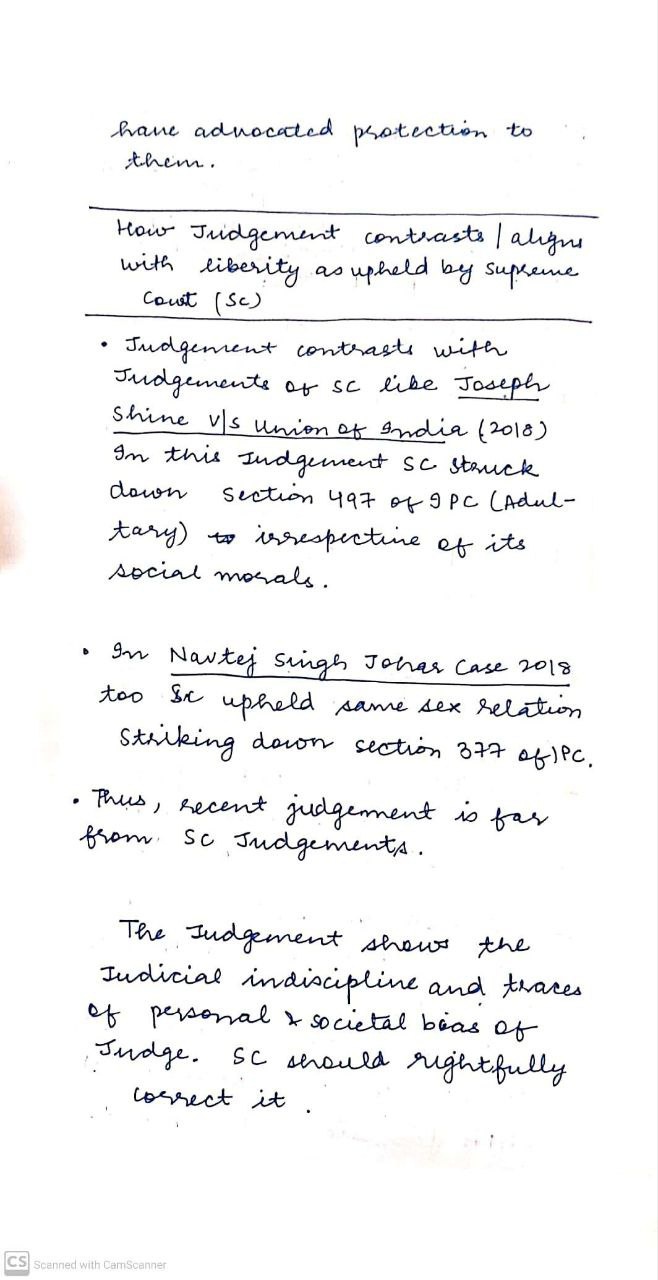 have advocated protection to
them.
How Judgement contrasts / aligns
with liberity as upheld by Supreme
Court (SC)
• Judgement contrasts with
Judgements of SC like Joseph
Shine v/s Union of India (2018)
In this Judgement SC struck
down Section 497 of IPC (Adul-
tary) to irrespective of its
social morals.
• In Navtej Singh Johar Case 2018
too SC upheld same sex relation
Striking down section 377 of IPC.
• Thus, recent judgement is far
from SC Judgements.
The Judgement shows the
Judicial indiscipline and traces
of personal & societal bias of
Judge. SC should rightfully
correct it.
CS Scanned with CamScanner